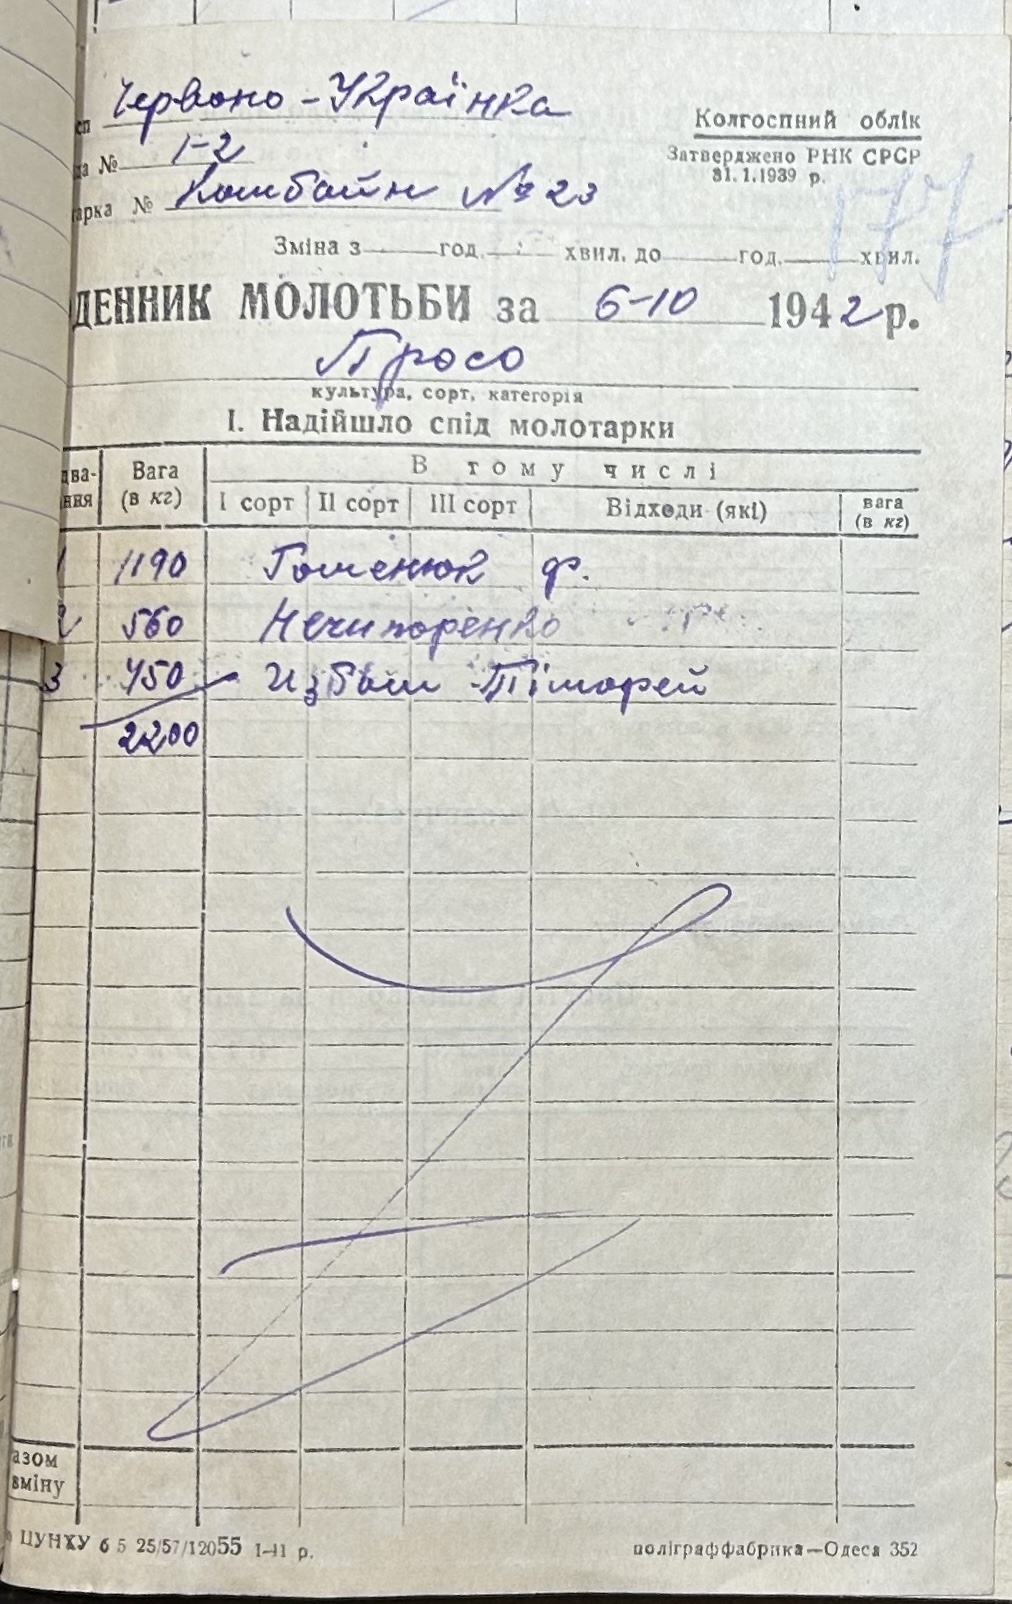 сп Червоно-Українка
Колгоспний облік
да № 1-2
Затверджено РНК СРСР
31.1.1939 р.
арка № Комбайн №23
177
Зміна з год. хвил. до год. хвил.
ДЕННИК МОЛОТЬБИ за 6-10 1942 р.
Просо
культура, сорт, категорія
І. Надійшло спід молотарки
два-
ння
Вага
(в кг)
В тому числі
І сорт ІІ сорт ІІІ сорт Відходи (які) вага
(в кг)
1 1190 Гоменюк Ф.
2 560 Нечипоренко
3 450 Избаш Тімофей
2200
азом
зміну
ЦУНХУ 6 5 25/57/12055 І-41 р. поліграффабрика—Одеса 352